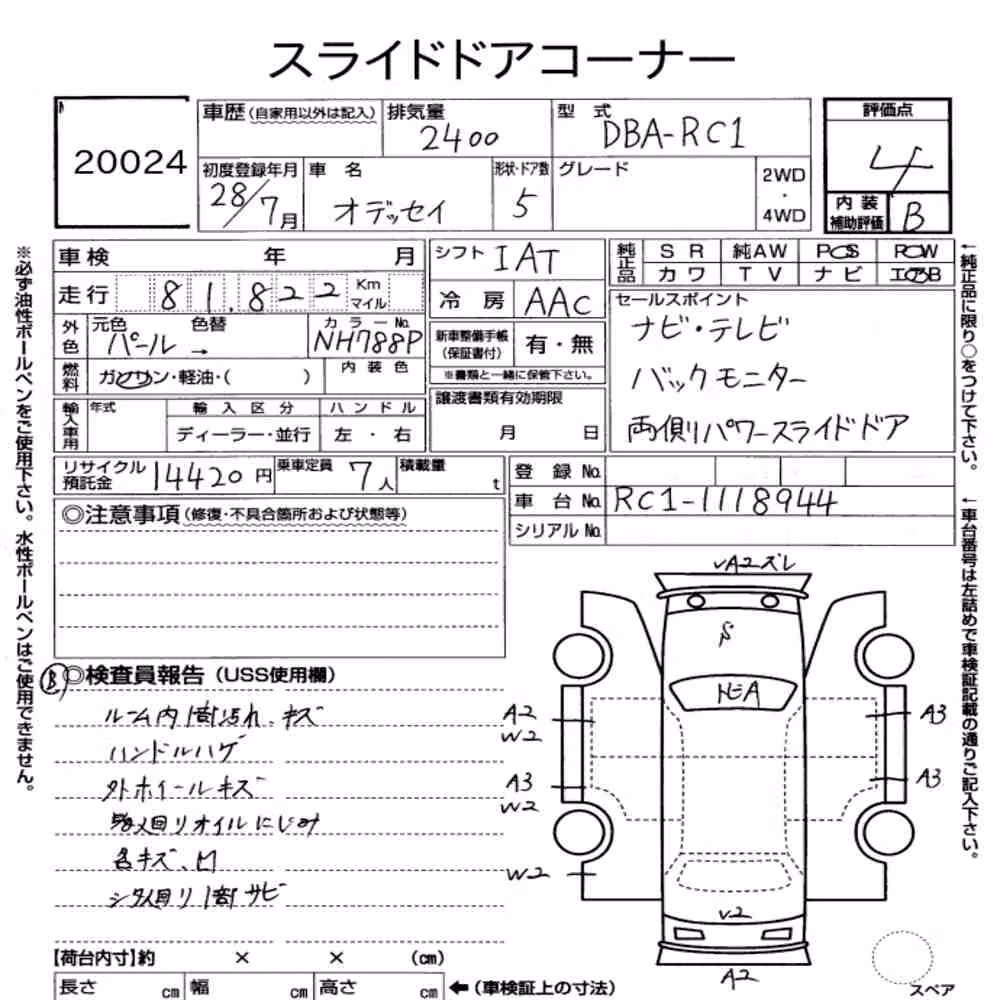 スライドドアコーナー
20024
車歴(自家用以外は記入)
排気量
2400
型式
DBA-RC1
評価点
4
初度登録年月
28/7月
車名
オデッセイ
形状・ドア数
5
グレード
2WD
・
4WD
内装
補助評価
B
※必ず油性ボールペンをご使用下さい。水性ボールペンはご使用できません。
車検 年 月
シフト IAT
純正品
SR 純AW PS PW
カワ TV ナビ
走行 81,822 Km
マイル
冷房 AAC
セールスポイント
ナビ・テレビ
バックモニター
両側パワースライドドア
外色
元色 色替
パール →
カラーNo.
NH788P
新車整備手帳
(保証書付)
有・無
※書類と一緒に保管下さい。
燃料
ガソリン・軽油・( )
内装色
譲渡書類有効期限
月 日
輸入車用
年式
輸入区分
ディーラー・並行
ハンドル
左・右
リサイクル
預託金
14420円
乗車定員
7人
積載量
t
登録No.
車台No. RC1-1118944
シリアルNo.
←純正品に限り○をつけて下さい。
←車台番号は左詰めで車検証記載の通りご記入下さい。
◎注意事項(修復・不具合箇所および状態等)
B
◎検査員報告(USS使用欄)
ルーム内1部汚れ、キズ
ハンドルハゲ
外ホイールキズ
回リオイルにじみ
各キズ、凹
回リ1部サビ
A2ズレ
S
トビA
A2
W2
A3
W2
W2
A3
A3
V2
A2
【荷台内寸】約 × × (cm)
長さ cm 幅 cm 高さ cm
←(車検証上の寸法)
スペア